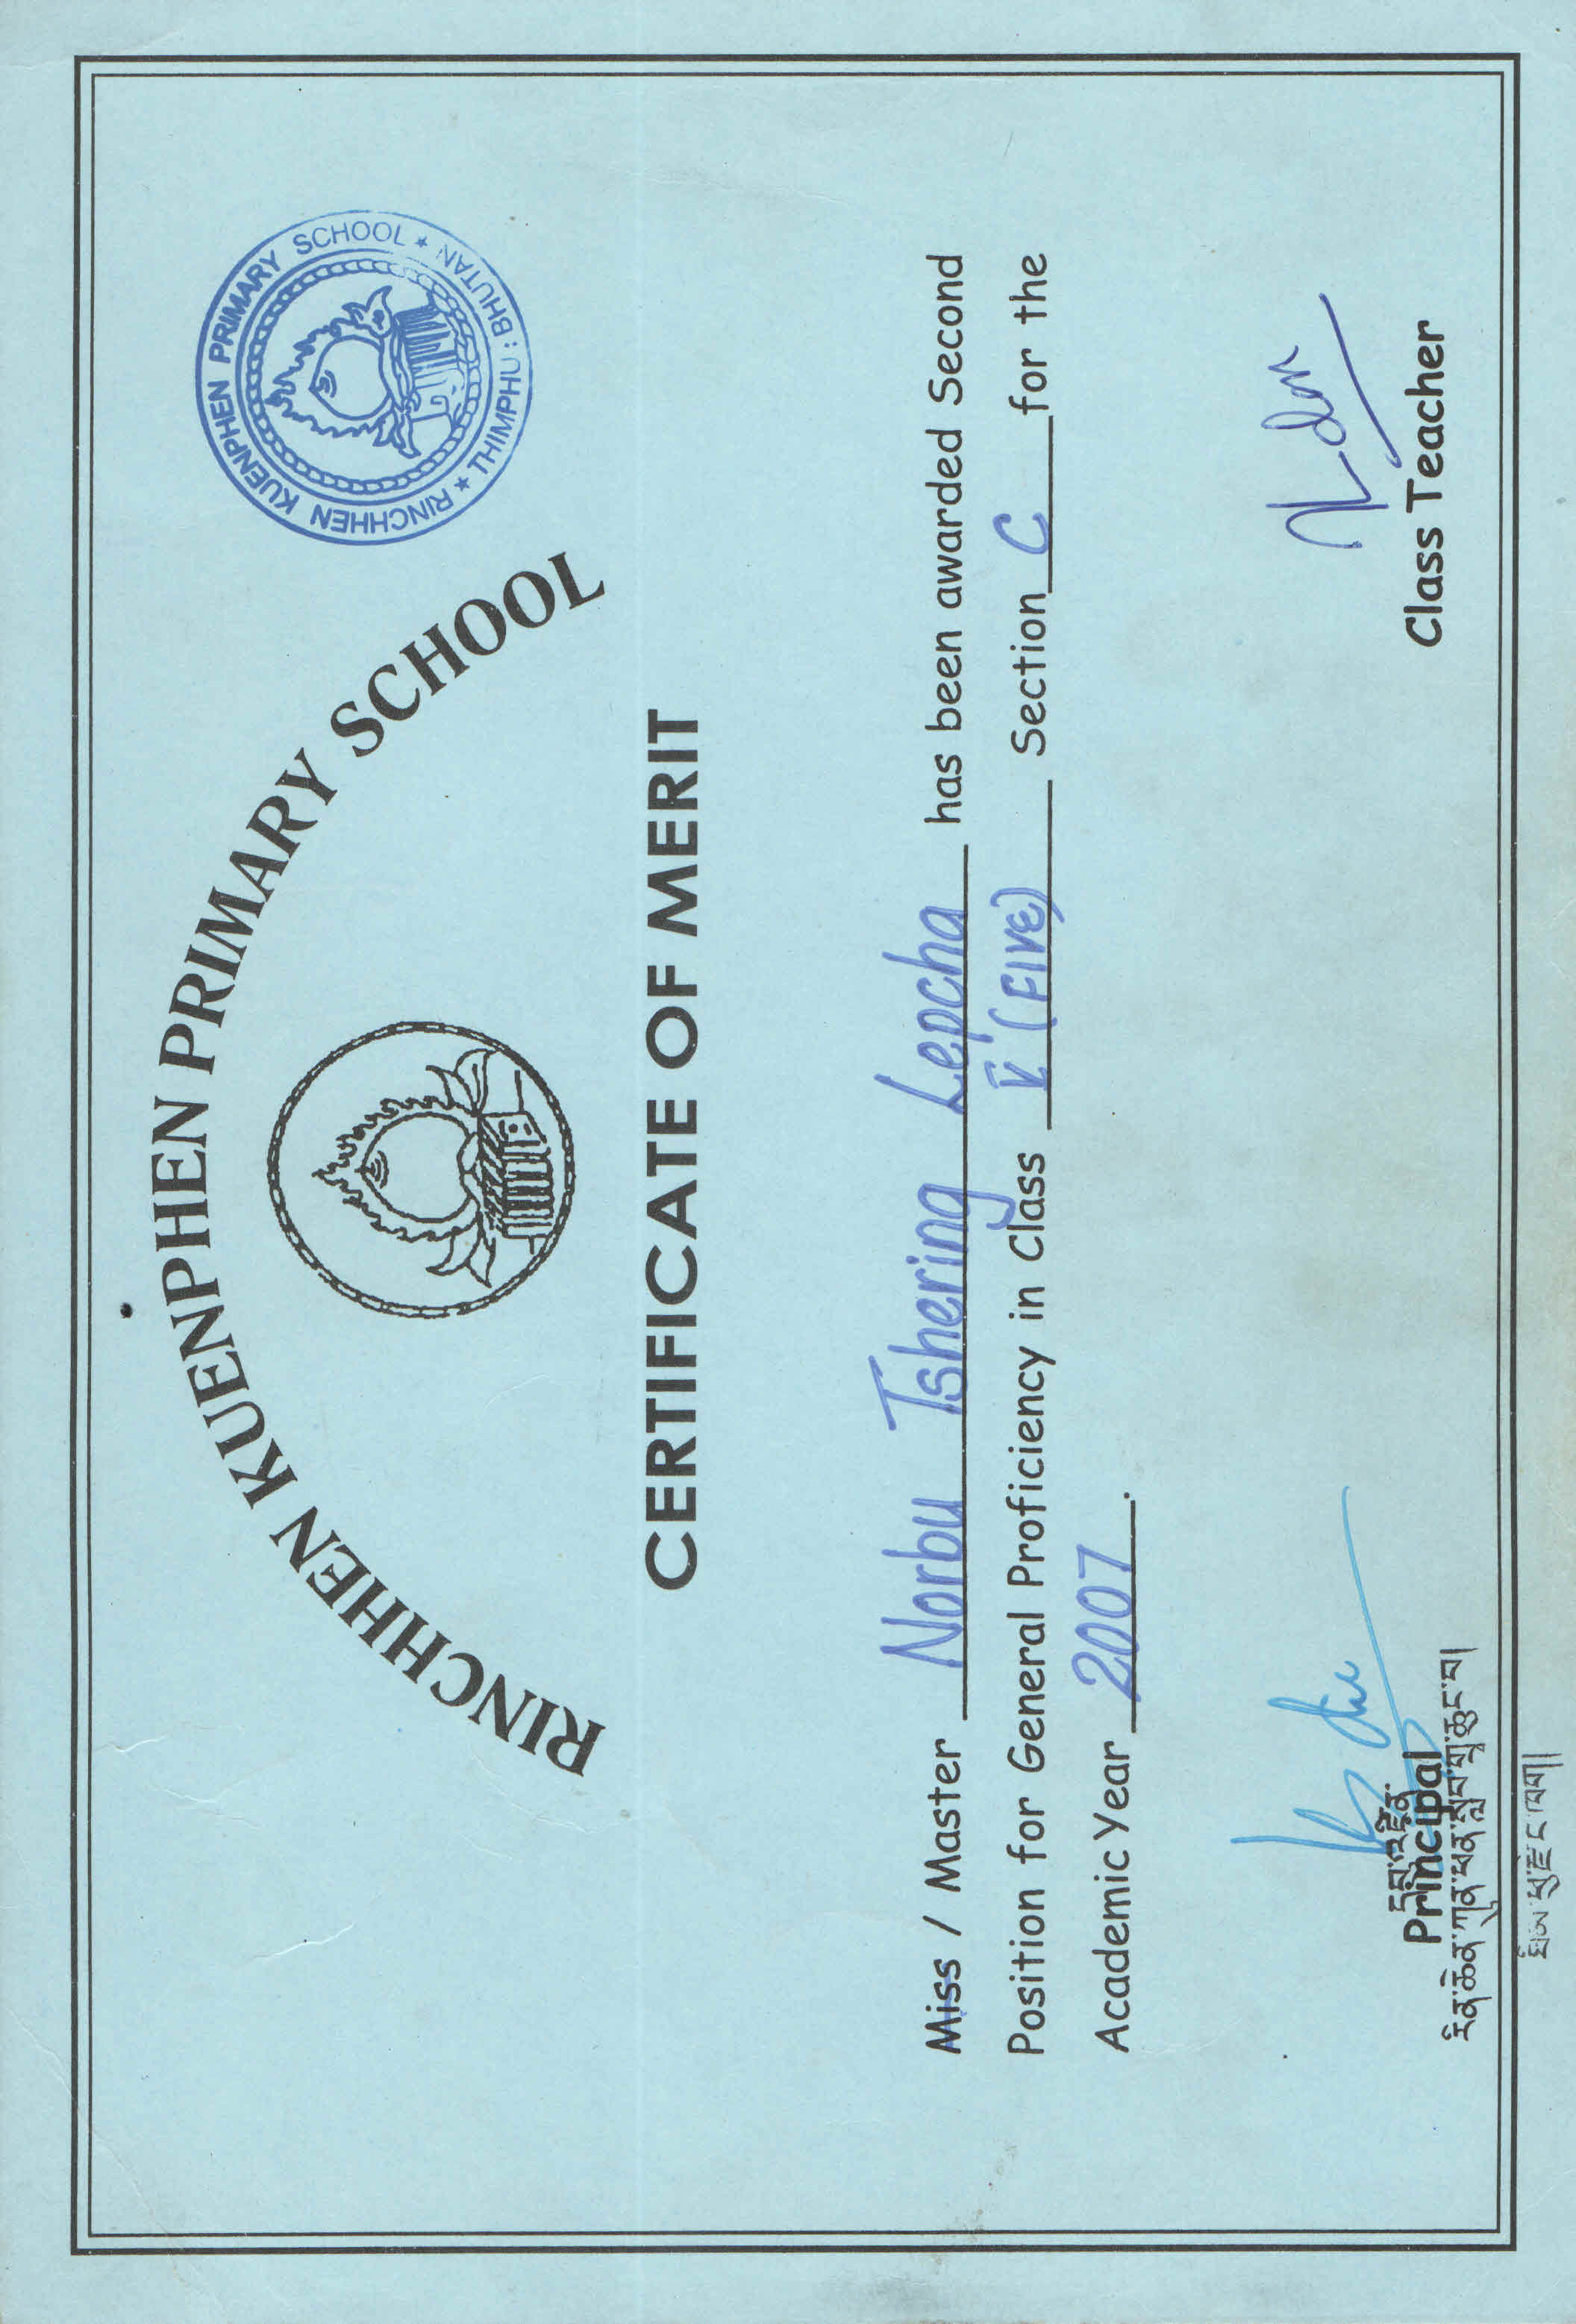 RINCHHEN KUENPHEN PRIMARY SCHOOL
RINCHHEN KUENPHEN PRIMARY SCHOOL
★ THIMPHU : BHUTAN ★
CERTIFICATE OF MERIT
Miss / Master Norbu Tshering Lepcha has been awarded Second
Position for General Proficiency in Class V (FIVE) Section C for the
Academic Year 2007.
དབུ་འཛིན་
Principal
Class Teacher
རིན་ཆེན་ཀུན་ཕན་སློབ་གྲྭ་ཆུང་བ།
ཐིམ་ཕུ་རྫོང་ཁག།